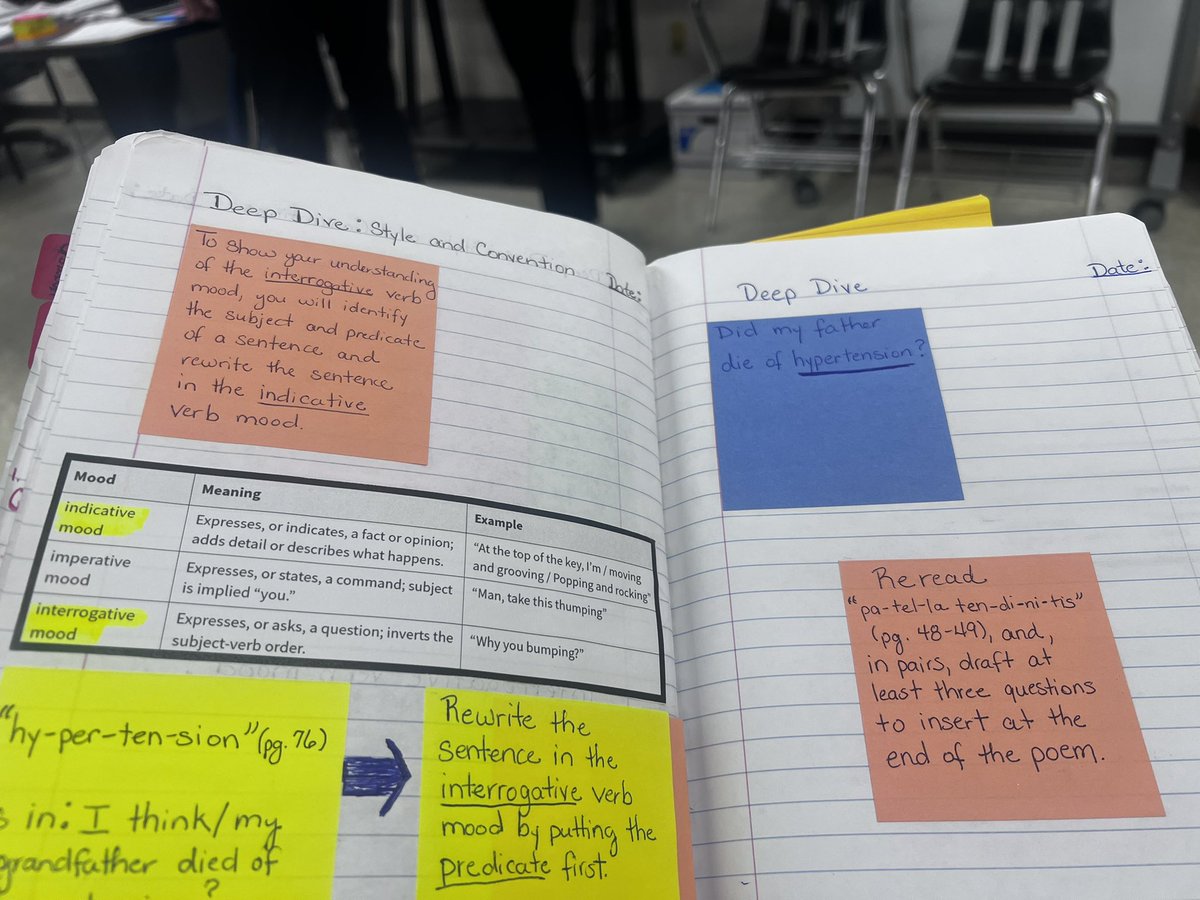 Deep Dive: Style and Convention
Date:
To show your understanding
of the interrogative verb
mood, you will identify
the subject and predicate
of a sentence and
rewrite the sentence
in the indicative
verb mood.
Mood Meaning Example
indicative
mood
Expresses, or indicates, a fact or opinion;
adds detail or describes what happens.
"At the top of the key, I'm / moving
and grooving / Popping and rocking"
imperative
mood
Expresses, or states, a command; subject
is implied "you."
"Man, take this thumping"
interrogative
mood
Expresses, or asks, a question; inverts the
subject-verb order.
"Why you bumping?"
"hy-per-ten-sion" (pg. 76)
in: I think/my
grandfather died of
?
Rewrite the
sentence in the
interrogative verb
mood by putting the
predicate first.
Deep Dive
Date:
Did my father
die of hypertension?
Reread
"pa-tel-la ten-di-ni-tis"
(pg. 48-49), and,
in pairs, draft at
least three questions
to insert at the
end of the poem.